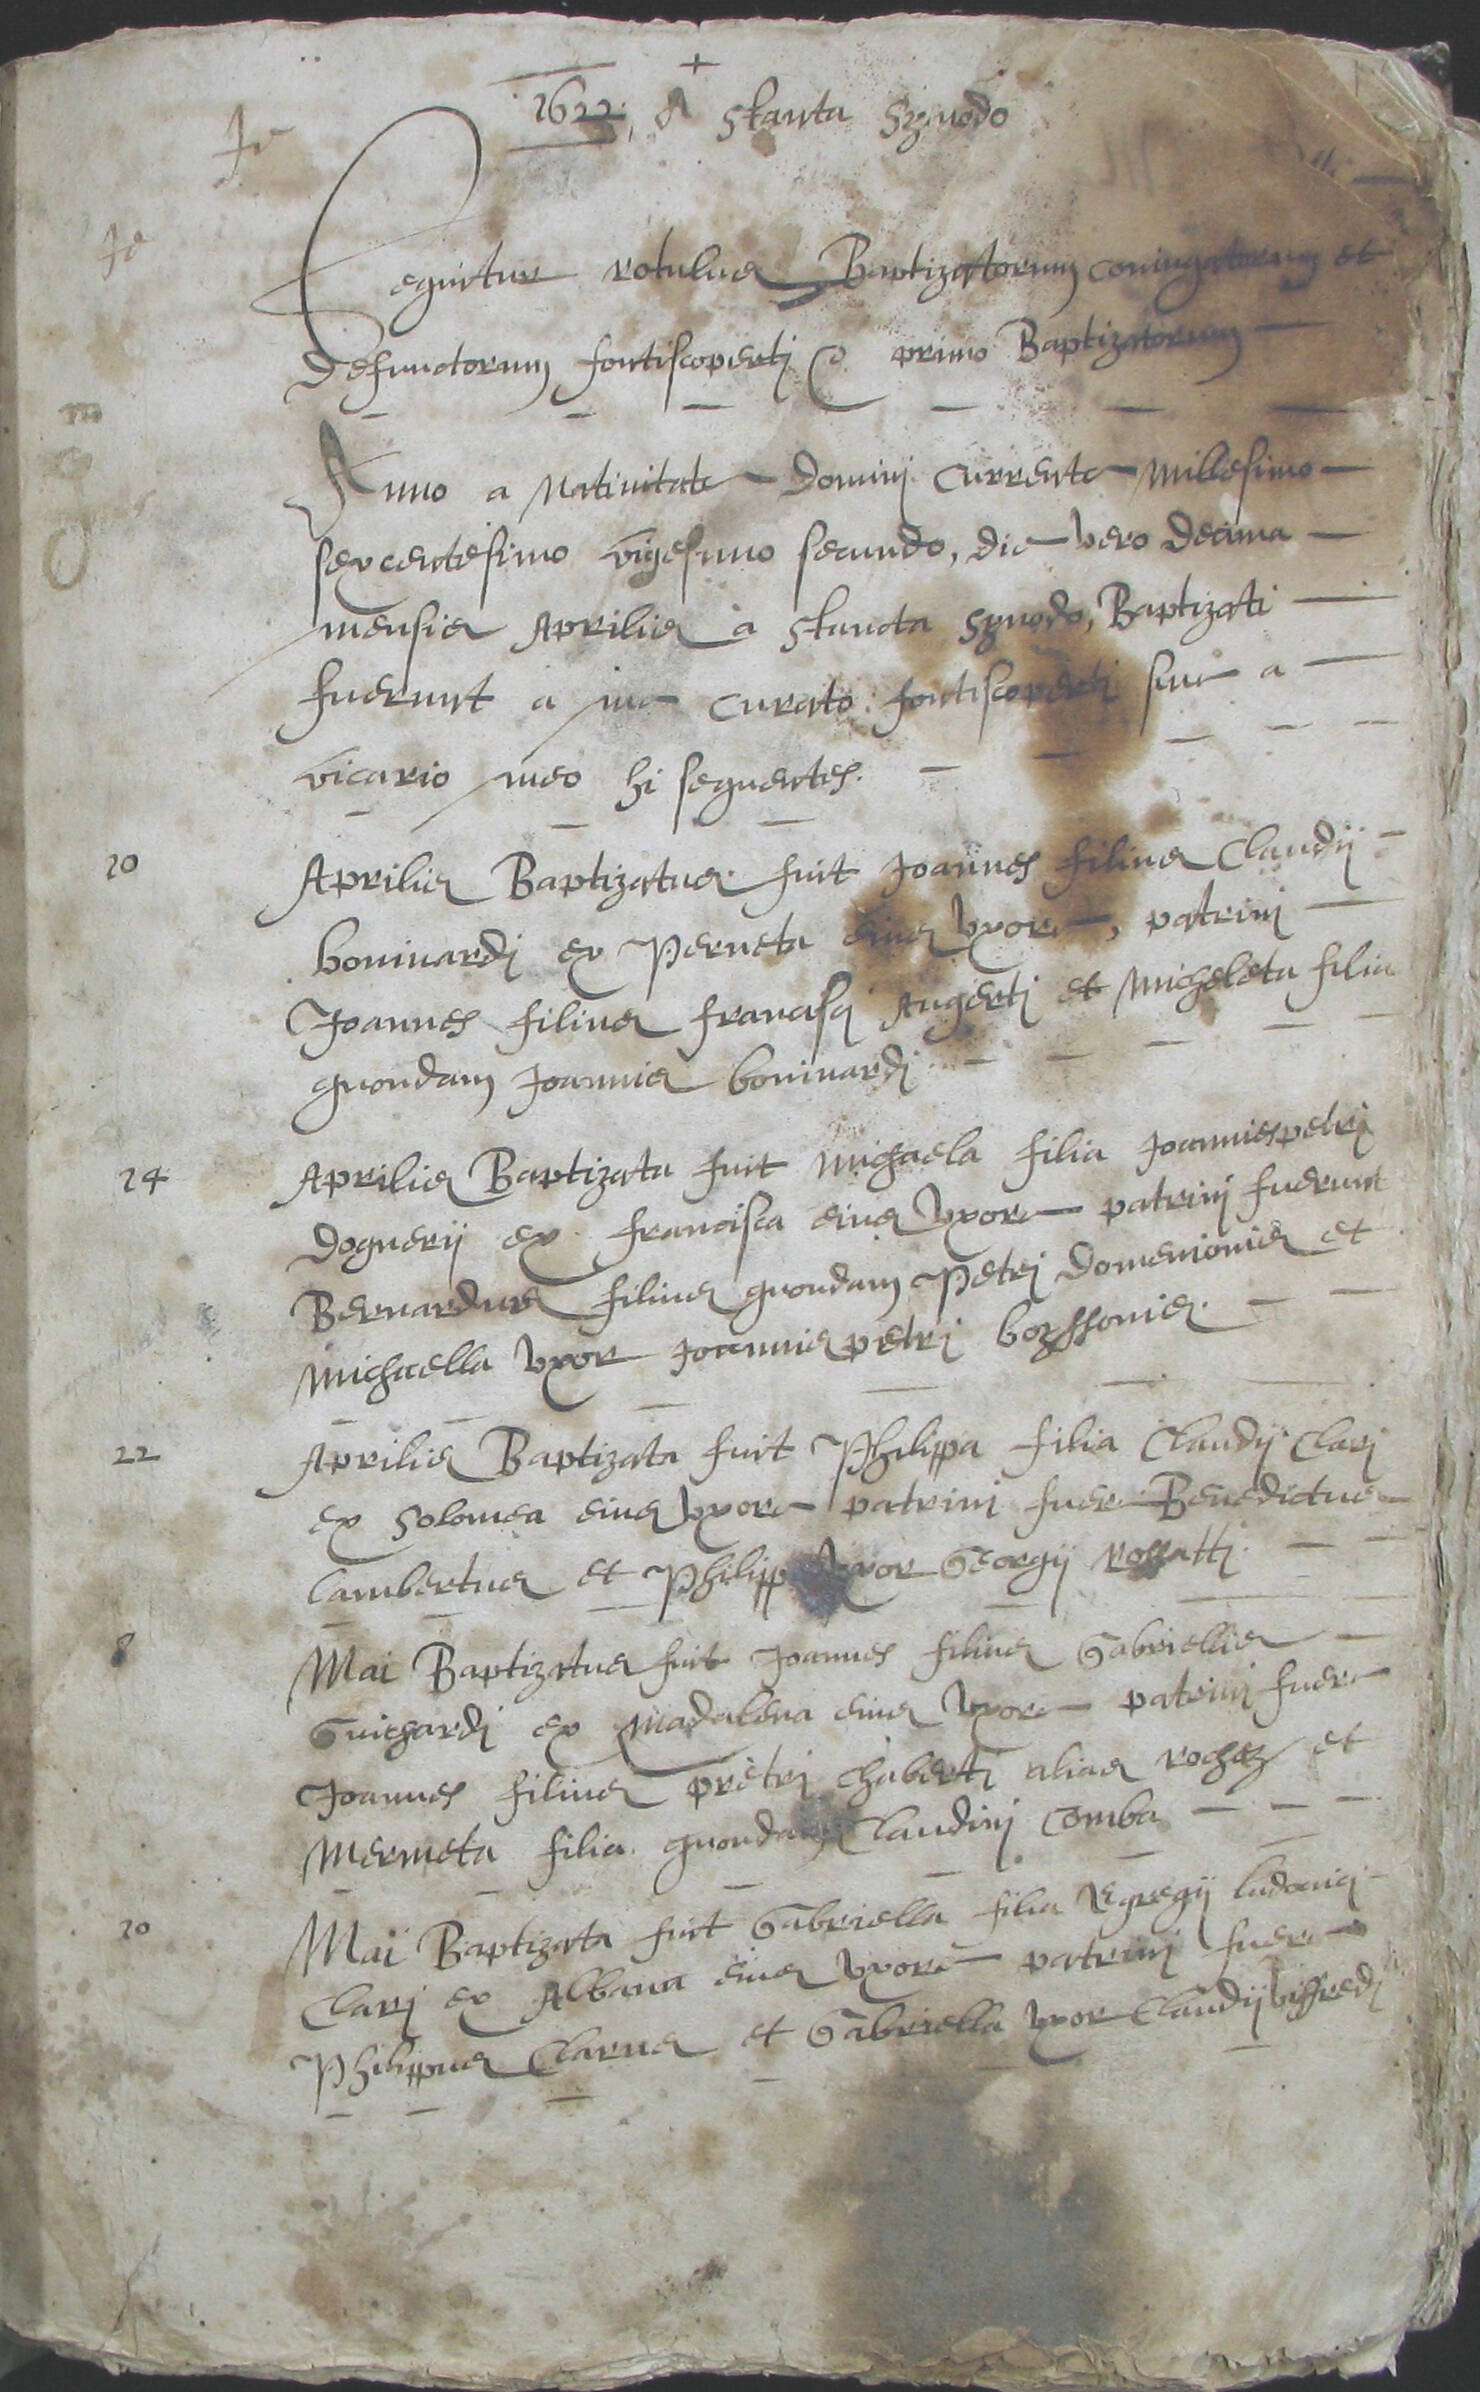 +
1622, A Sancta Synodo
Je
Je
Sequitur rotulus Baptizatorum coniugatorum et
Defunctorum fontiscoperti & primo Baptizatorum
Anno a Nativitate Domini currente Millesimo
sexcentesimo vigesimo secundo, die vero decima
mensis Aprilis a Sancta Synodo, Baptizati
fuerunt a me curato fontiscoperti sive a
vicario meo hi sequentes.
10 Aprilis Baptizatus fuit Joannes filius Claudii
bonivardi ex Perneta eius Uxore, patrini
Joannes filius francisci Augerti et Micheleta filia
quondam Joannis bonivardi
14 Aprilis Baptizata fuit Michaela filia Joannispetri
Dognerii ex francisca eius Uxore patrini fuerunt
Bernardus filius quondam Petri Domenionis et
Michaella Uxor Joannispetri boyssonis
22 Aprilis Baptizata fuit Philippa filia Claudij Clarj
ex Solomea eius Uxore patrini fuere Benedictus
Lambertus et Philipp Uxor Georgij Rossatti
8 Mai Baptizatus fuit Joannes filius Gabriellis
Guichardj ex Madalena eius Uxore patrini fuere
Joannes filius Petri Chaberti alias Rochez et
Mermeta filia quondam Claudini Comba
10 Maii Baptizata fuit Gabriella filia Egregij ludovici
Clarj ex Albana eius Uxore patrini fuere
Philippus Clarus et Gabriella Uxor Claudij Viffredi